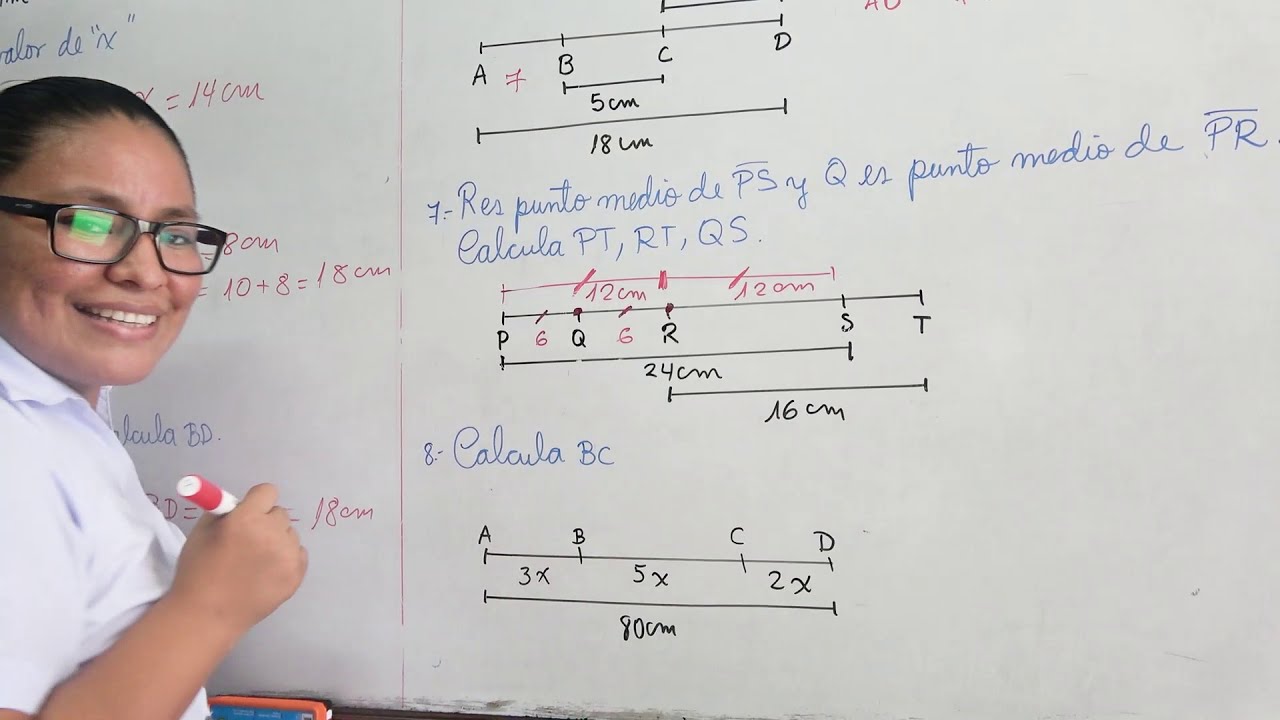 valor de "x"
x = 14cm
= 8cm
= 10+8=18cm
Calcula BD.
BD=
= 18cm
A 7 B C D
5cm
18cm
7.- R es punto medio de PS y Q es punto medio de PR.
Calcula PT, RT, QS.
12cm 12cm
P 6 Q 6 R S T
24cm
16cm
8.- Calcula BC
A B C D
3x 5x 2x
80cm